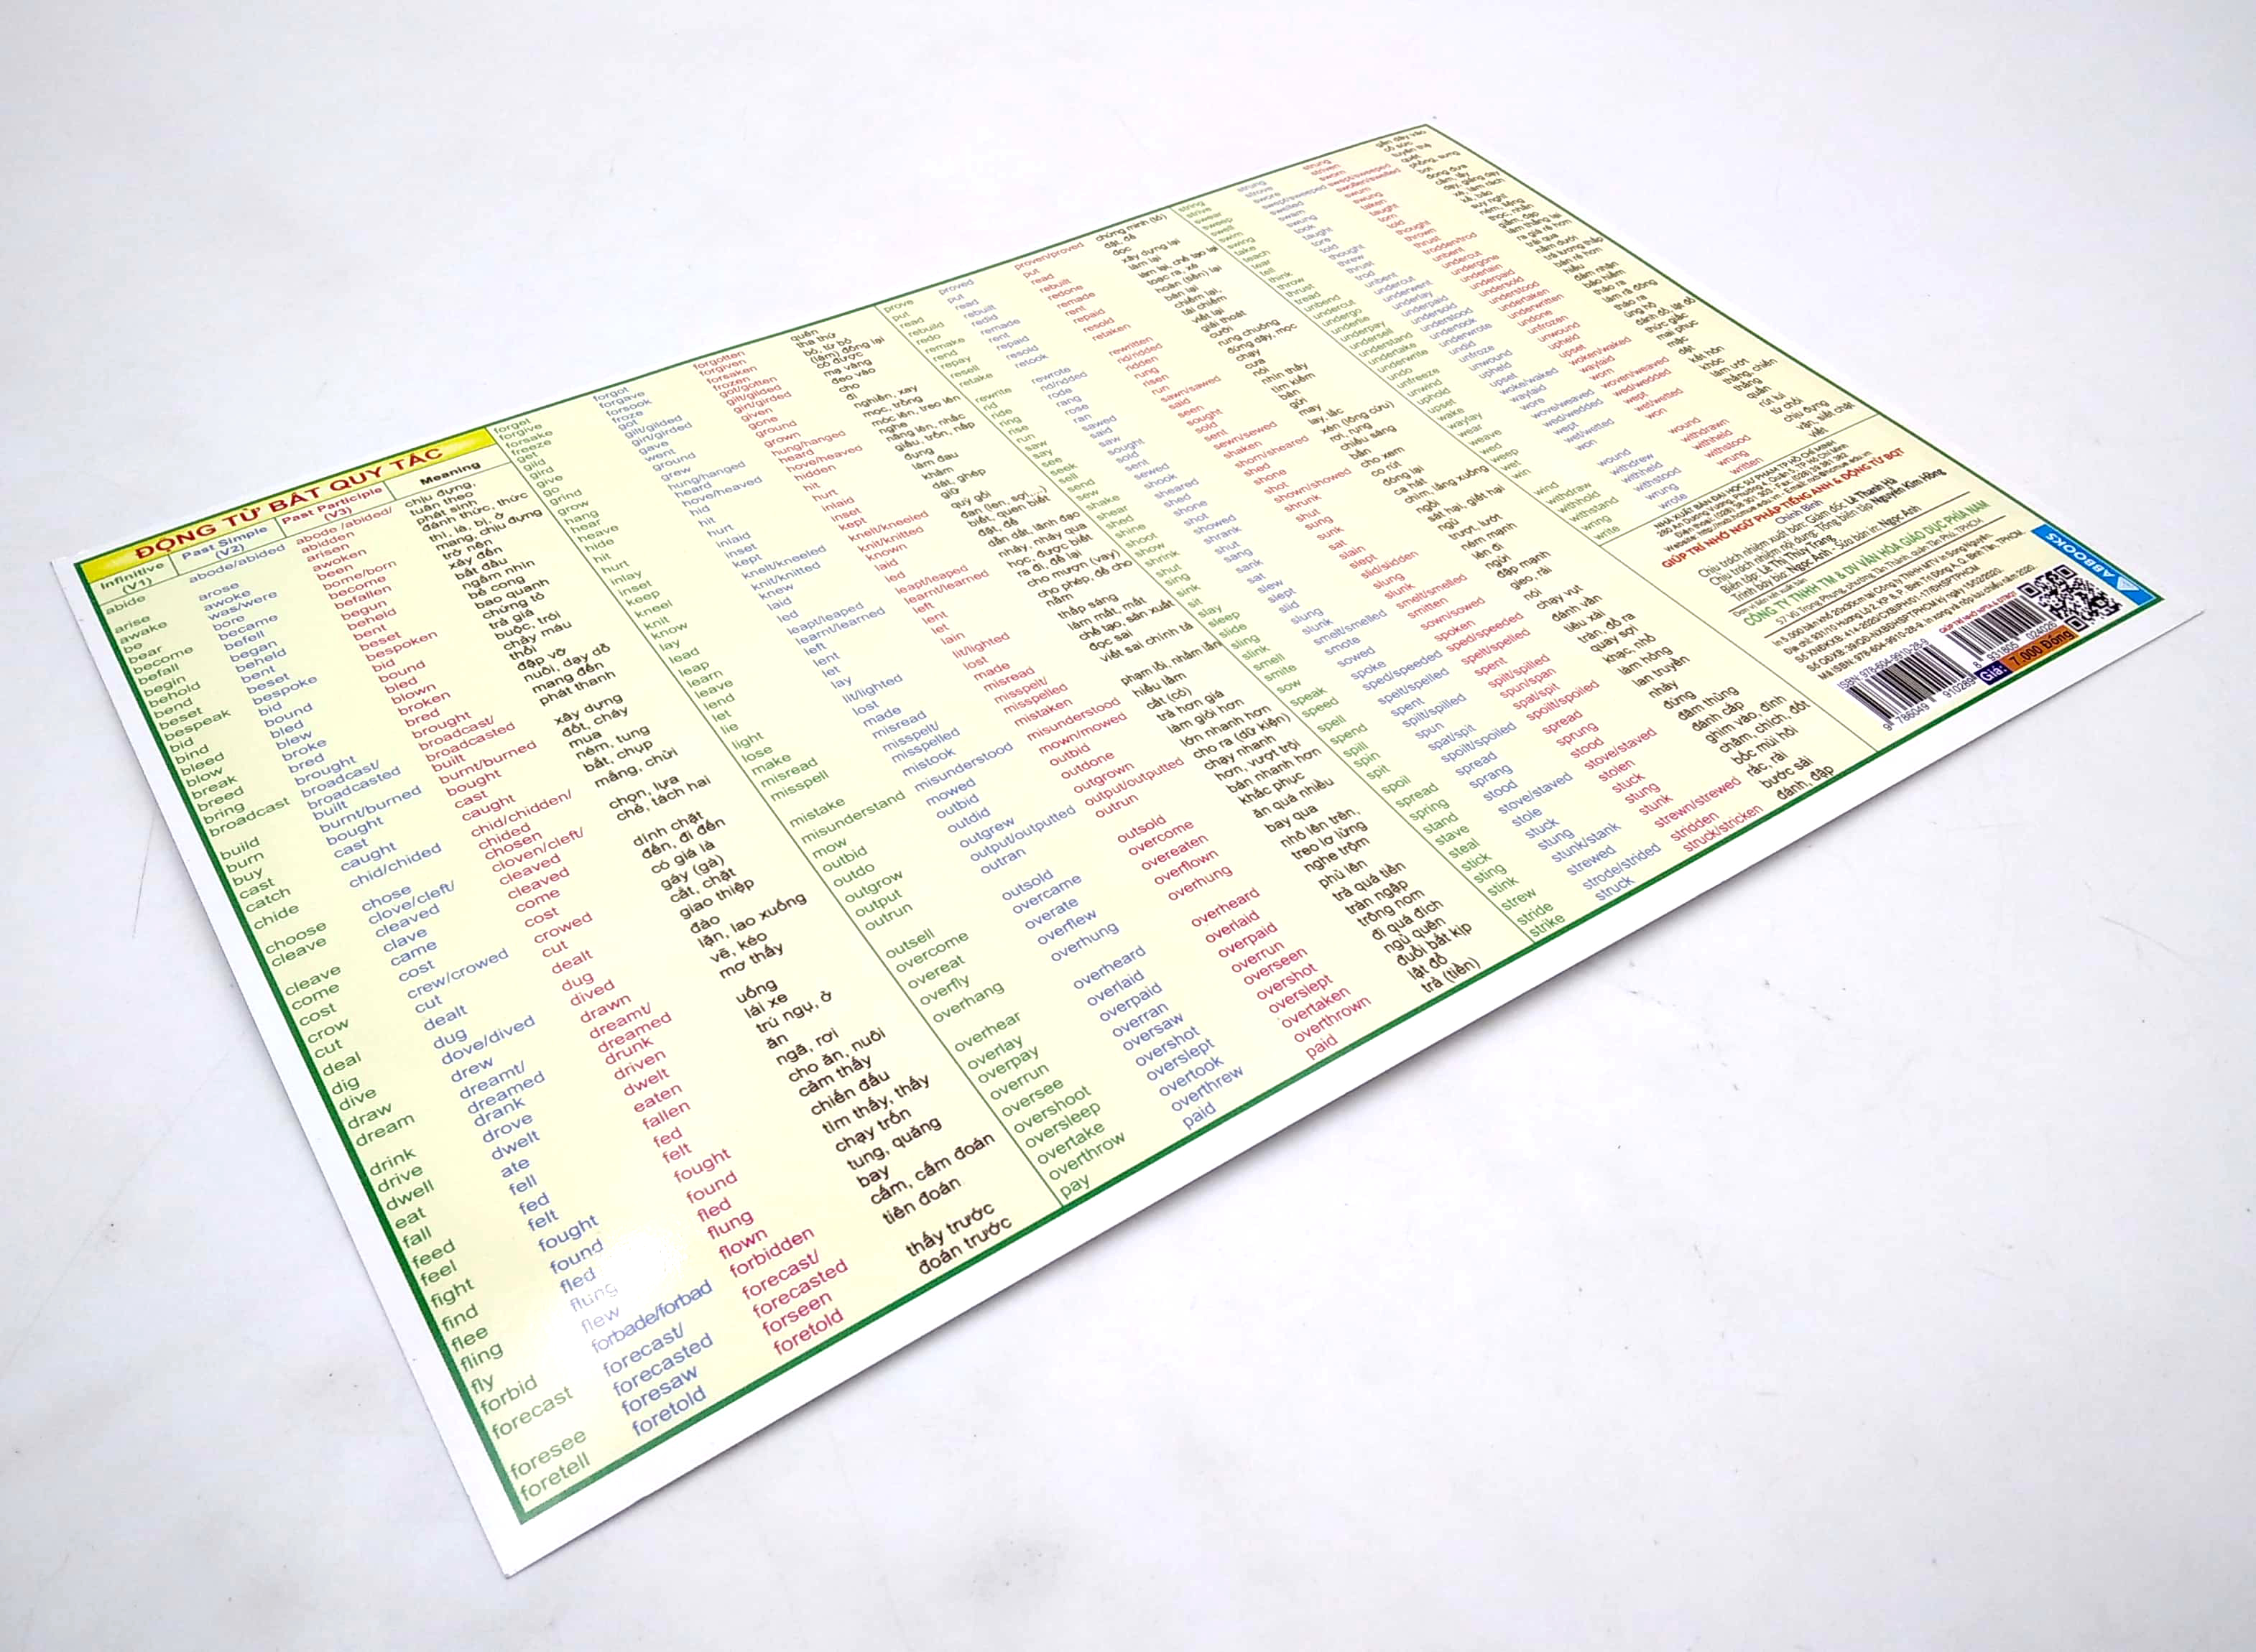 ĐỘNG TỪ BẤT QUY TẮC
Infinitive (V1) Past Simple (V2) Past Participle (V3) Meaning
abide abode/abided abode /abided/ chịu đựng,
abidden tuân theo
arise arose arisen phát sinh
awake awoke awoken đánh thức, thức
be was/were been thì, là, bị, ở
bear bore borne/born mang, chịu đựng
become became become trở nên
befall befell befallen xảy đến
begin began begun bắt đầu
behold beheld beheld ngắm nhìn
bend bent bent bẻ cong
beset beset beset bao quanh
bespeak bespoke bespoken chứng tỏ
bid bid bid trả giá
bind bound bound buộc, trói
bleed bled bled chảy máu
blow blew blown thổi
break broke broken đập vỡ
breed bred bred nuôi, dạy dỗ
bring brought brought mang đến
broadcast broadcast/ broadcast/ phát thanh
broadcasted broadcasted
build built built xây dựng
burn burnt/burned burnt/burned đốt, cháy
buy bought bought mua
cast cast cast ném, tung
catch caught caught bắt, chụp
chide chid/chided chid/chidden/ mắng, chửi
chided
choose chose chosen chọn, lựa
cleave clove/cleft/ cloven/cleft/ chẻ, tách hai
cleaved cleaved
cleave clave cleaved dính chặt
come came come đến, đi đến
cost cost cost có giá là
crow crew/crowed crowed gáy (gà)
cut cut cut cắt, chặt
deal dealt dealt giao thiệp
dig dug dug đào
dive dove/dived dived lặn, lao xuống
draw drew drawn vẽ, kéo
dream dreamt/ dreamt/ mơ thấy
dreamed dreamed
drink drank drunk uống
drive drove driven lái xe
dwell dwelt dwelt trú ngụ, ở
eat ate eaten ăn
fall fell fallen ngã, rơi
feed fed fed cho ăn, nuôi
feel felt felt cảm thấy
fight fought fought chiến đấu
find found found tìm thấy, thấy
flee fled fled chạy trốn
fling flung flung tung, quăng
fly flew flown bay
forbid forbade/forbad forbidden cấm, cấm đoán
forecast forecast/ forecast/ tiên đoán
forecasted forecasted
foresee foresaw forseen thấy trước
foretell foretold foretold đoán trước
forget forgot forgotten quên
forgive forgave forgiven tha thứ
forsake forsook forsaken bỏ, từ bỏ
freeze froze frozen (làm) đông lại
get got got/gotten có được
gild gilt/gilded gilt/gilded mạ vàng
gird girt/girded girt/girded đeo vào
give gave given cho
go went gone đi
grind ground ground nghiền, xay
grow grew grown mọc, trồng
hang hung/hanged hung/hanged móc lên, treo lên
hear heard heard nghe
heave hove/heaved hove/heaved nâng lên, nhấc
hide hid hidden giấu, trốn, nấp
hit hit hit đụng
hurt hurt hurt làm đau
inlay inlaid inlaid khảm
inset inset inset dát, ghép
keep kept kept giữ
kneel knelt/kneeled knelt/kneeled quỳ gối
knit knit/knitted knit/knitted đan (len, sợi,...)
know knew known biết, quen biết
lay laid laid đặt, để
lead led led dẫn dắt, lãnh đạo
leap leapt/leaped leapt/leaped nhảy, nhảy qua
learn learnt/learned learnt/learned học, được biết
leave left left ra đi, để lại
lend lent lent cho mượn (vay)
let let let cho phép, để cho
lie lay lain nằm
light lit/lighted lit/lighted thắp sáng
lose lost lost làm mất, mất
make made made chế tạo, sản xuất
misread misread misread đọc sai
misspell misspelt/ misspelt/ viết sai chính tả
misspelled misspelled
mistake mistook mistaken phạm lỗi, nhầm lẫn
misunderstand misunderstood misunderstood hiểu lầm
mow mowed mown/mowed cắt (cỏ)
outbid outbid outbid trả hơn giá
outdo outdid outdone làm giỏi hơn
outgrow outgrew outgrown lớn nhanh hơn
output output/outputted output/outputted cho ra (dữ kiện)
outrun outran outrun chạy nhanh hơn, vượt trội
outsell outsold outsold bán nhanh hơn
overcome overcame overcome khắc phục
overeat overate overeaten ăn quá nhiều
overfly overflew overflown bay qua
overhang overhung overhung nhô lên trên, treo lơ lửng
overhear overheard overheard nghe trộm
overlay overlaid overlaid phủ lên
overpay overpaid overpaid trả quá tiền
overrun overran overrun tràn ngập
oversee oversaw overseen trông nom
overshoot overshot overshot đi quá đích
oversleep overslept overslept ngủ quên
overtake overtook overtaken đuổi bắt kịp
overthrow overthrew overthrown lật đổ
pay paid paid trả (tiền)
prove proved proven/proved chứng minh (tỏ)
put put put đặt, để
read read read đọc
rebuild rebuilt rebuilt xây dựng lại
redo redid redone làm lại
remake remade remade làm lại, chế tạo lại
rend rent rent toạc ra, xé
repay repaid repaid hoàn (tiền) lại
resell resold resold bán lại
retake retook retaken chiếm lại, tái chiếm
rewrite rewrote rewritten viết lại
rid rid/ridded rid/ridded giải thoát
ride rode ridden cưỡi
ring rang rung rung chuông
rise rose risen đứng dậy, mọc
run ran run chạy
saw sawed sawn/sawed cưa
say said said nói
see saw seen nhìn thấy
seek sought sought tìm kiếm
sell sold sold bán
send sent sent gửi
sew sewed sewn/sewed may
shake shook shaken lay, lắc
shear sheared shorn/sheared xén (lông cừu)
shed shed shed rơi, rụng
shine shone shone chiếu sáng
shoot shot shot bắn
show showed shown/showed cho xem
shrink shrank shrunk co rút
shut shut shut đóng lại
sing sang sung ca hát
sink chìm, lắng xuống
sit sat sat ngồi
slay slew slain sát hại, giết hại
sleep slept ngủ
slide slid slid/slidden trượt, lướt
sling slung slung ném mạnh
slink slunk lẻn đi
smell smelt/smelled smelt/smelled ngửi
smite smote smitten đập mạnh
sow sowed sown/sowed gieo, rải
speak spoke spoken nói
speed sped/speeded sped/speeded chạy vụt
spell spelt/spelled spelt/spelled đánh vần
spend spent spent tiêu xài
spill spilt/spilled spilt/spilled tràn, đổ ra
spin spun spun/span quay sợi
spit spat/spit spat/spit khạc, nhổ
spoil spoilt/spoiled spoilt/spoiled làm hỏng
spread spread spread lan truyền
spring sprang sprung nhảy
stand stood stood đứng
stave stove/staved stove/staved đâm thủng
steal stole stolen đánh cắp
stick stuck stuck ghim vào, đính
sting stung stung châm, chích, đốt
stink stunk/stank stunk bốc mùi hôi
strew strewed strewn/strewed rắc, rải
stride strode/strided stridden bước sải
strike struck struck/stricken đánh, đập
string strung strung gắn dây vào
strive strove striven cố sức
swear swore sworn tuyên thệ
sweep swept/sweeped swept/sweeped quét
swell swelled swollen/swelled phồng, sưng
swim swam swum bơi
swing swung swung đong đưa
take took taken cầm, lấy
teach taught taught dạy, giảng dạy
tear tore torn xé, làm rách
tell told told kể, bảo
think thought thought suy nghĩ
throw threw thrown ném, liệng
thrust thrust thrust thọc, nhấn
tread trod trodden/trod giẫm, đạp
unbend unbent unbent làm thẳng lại
undercut undercut undercut ra giá rẻ hơn
undergo underwent undergone trải qua
underlie underlay underlain nằm dưới
underpay underpaid underpaid trả lương thấp
undersell undersold undersold bán rẻ hơn
understand understood understood hiểu
undertake undertook undertaken đảm nhận
underwrite underwrote underwritten bảo hiểm
undo undid undone tháo ra
unfreeze unfroze unfrozen làm rã đông
unwind unwound unwound tháo ra
uphold upheld upheld ủng hộ
upset upset upset đánh đổ, lật đổ
wake woke/waked woken/waked thức giấc
waylay waylaid waylaid mai phục
wear wore worn mặc
weave wove/weaved woven/weaved dệt
wed wed/wedded wed/wedded kết hôn
weep wept wept khóc
wet wet/wetted wet/wetted làm ướt
win won won thắng, chiến thắng
wind wound wound quấn
withdraw withdrew withdrawn rút lui
withhold withheld withheld từ chối
withstand withstood withstood chịu đựng
wring wrung wrung vặn, siết chặt
write wrote written viết
NHÀ XUẤT BẢN ĐẠI HỌC SƯ PHẠM TP HỒ CHÍ MINH
280 An Dương Vương, Phường 4, Quận 5, TP Hồ Chí Minh
Điện thoại: (028) 38 301 303 - Fax: (028) 39 381 382
Website: http://nxb.hcmue.edu.vn - Email: nxb@hcmue.edu.vn
GIÚP TRÍ NHỚ NGỮ PHÁP TIẾNG ANH & ĐỘNG TỪ BQT
Chinh Bình
Chịu trách nhiệm xuất bản: Giám đốc Lê Thanh Hà
Chịu trách nhiệm nội dung: Tổng biên tập Nguyễn Kim Hồng
Biên tập: Lê Thị Thùy Trang
Trình bày bìa: Ngọc Anh - Sửa bản in: Ngọc Anh
Đơn vị liên kết xuất bản:
CÔNG TY TNHH TM & DV VĂN HÓA GIÁO DỤC PHÍA NAM
ISBN: 978-604-9910-28-9
9 786049 910289
GIÚP TRÍ NHỚ NPTA & ĐTBQT
8 931805 024026
Giá: 7.000 Đồng
ABBOOKS